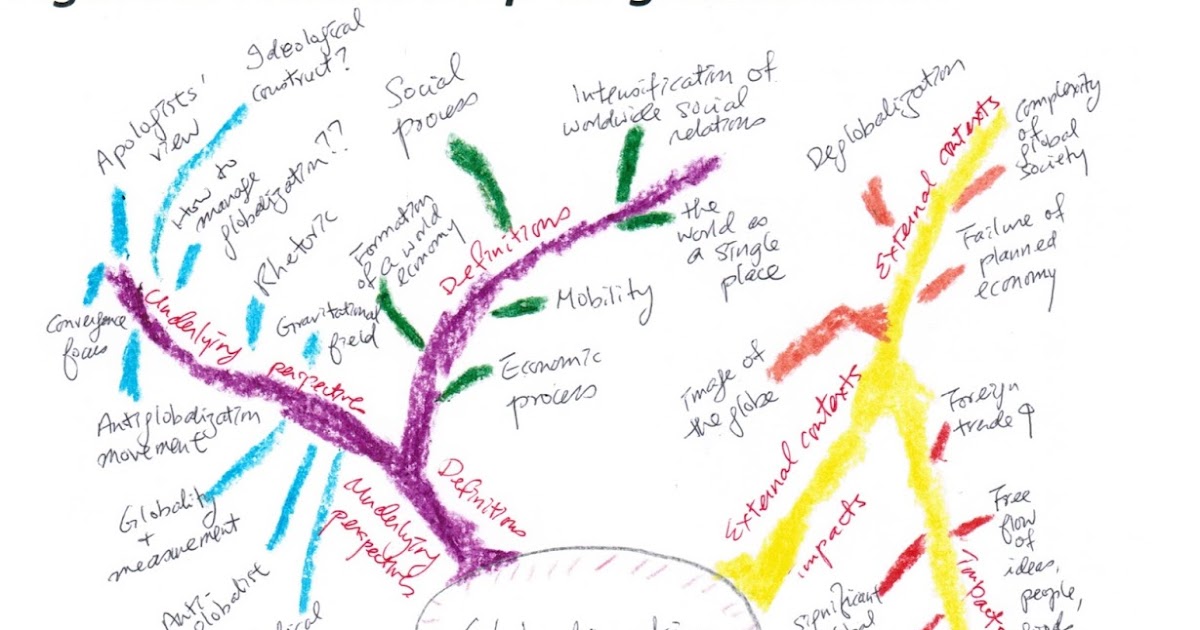 Ideological
construct?
Apologists'
view
How to
manage
globalization??
Rhetoric
Convergence
focus
Underlying
perspectives
Gravitational
field
Antiglobalization
movement
Globality
+
measurement
Anti-
Underlying
perspectives
Social
process
Intensification of
worldwide social
relations
Formation
of a world
economy
Definitions
the
world as
a single
place
Mobility
Economic
process
Definitions
Deglobalization
External contexts
complexity
of
global
society
Failure of
planned
economy
image of
the globe
External contexts
impacts
Foreign
trade
Free
flow
of
ideas,
people,
impacts
significant